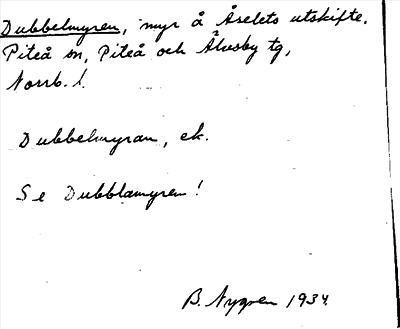 Dubbelmyren, myr å Åselets utskifte.
Piteå sn, Piteå och Älvsby tg,
Norrb. l.
Dubbelmyran, ek.
Se Dubblamyren!
B. Nygren 1934.